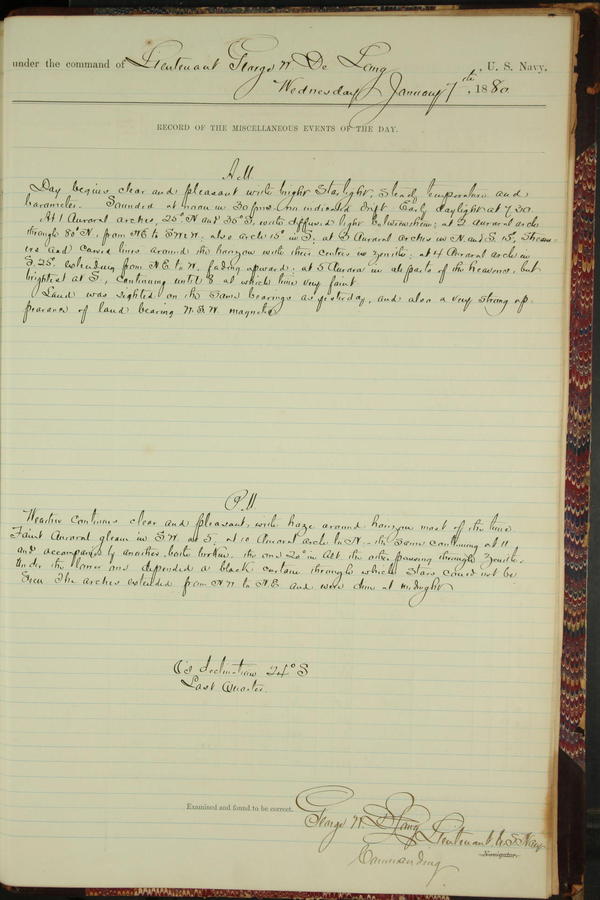 under the command of Lieutenant George W De Long, U. S. Navy.
Wednesday January 7th, 1880
RECORD OF THE MISCELLANEOUS EVENTS OF THE DAY.
A.M.
Day begins clear and pleasant with bright Starlight, Steady temperature and
barometer. Sounded at noon in 30 fms. (no indicated drift. Early daylight at 7.30.
At 1 Auroral arches, 25° N and 35° S. with diffused light between them; at 2 auroral arch
through 80° N. from NE to WNW: also arch 15° in S; at 3 Auroral arches in N. and S. 15°, Stream-
ers and Curved lines around the horizon with their centres in zenith; at 4 Auroral arch in
S. 25° extending from N.E. to W. fading upward; at 5 Aurora in all parts of the heavens, but
brightest at S, Continuing until 8 at which time very faint.
Land was sighted on the Same bearings as yesterday, and also a very strong ap-
pearance of land bearing W.S.W. magnetic
P.M.
Weather Continues clear and pleasant, with haze around horizon most of the time.
Faint Auroral gleam in SW. at 5; at 10 Auroral arch in N. the Same Continuing at 11
and accompanied by another, both broken. the one 20° in Alt. the other passing through Zenith.
Under the lower one depended a black Curtain through which Stars could not be
Seen The arches extended from NW to N.E. and were dim at midnight
☾'s declination 24° S
Last Quarter.
Examined and found to be correct.
George W. De Long Lieutenant U.S. Navy
Commanding
Navigator.